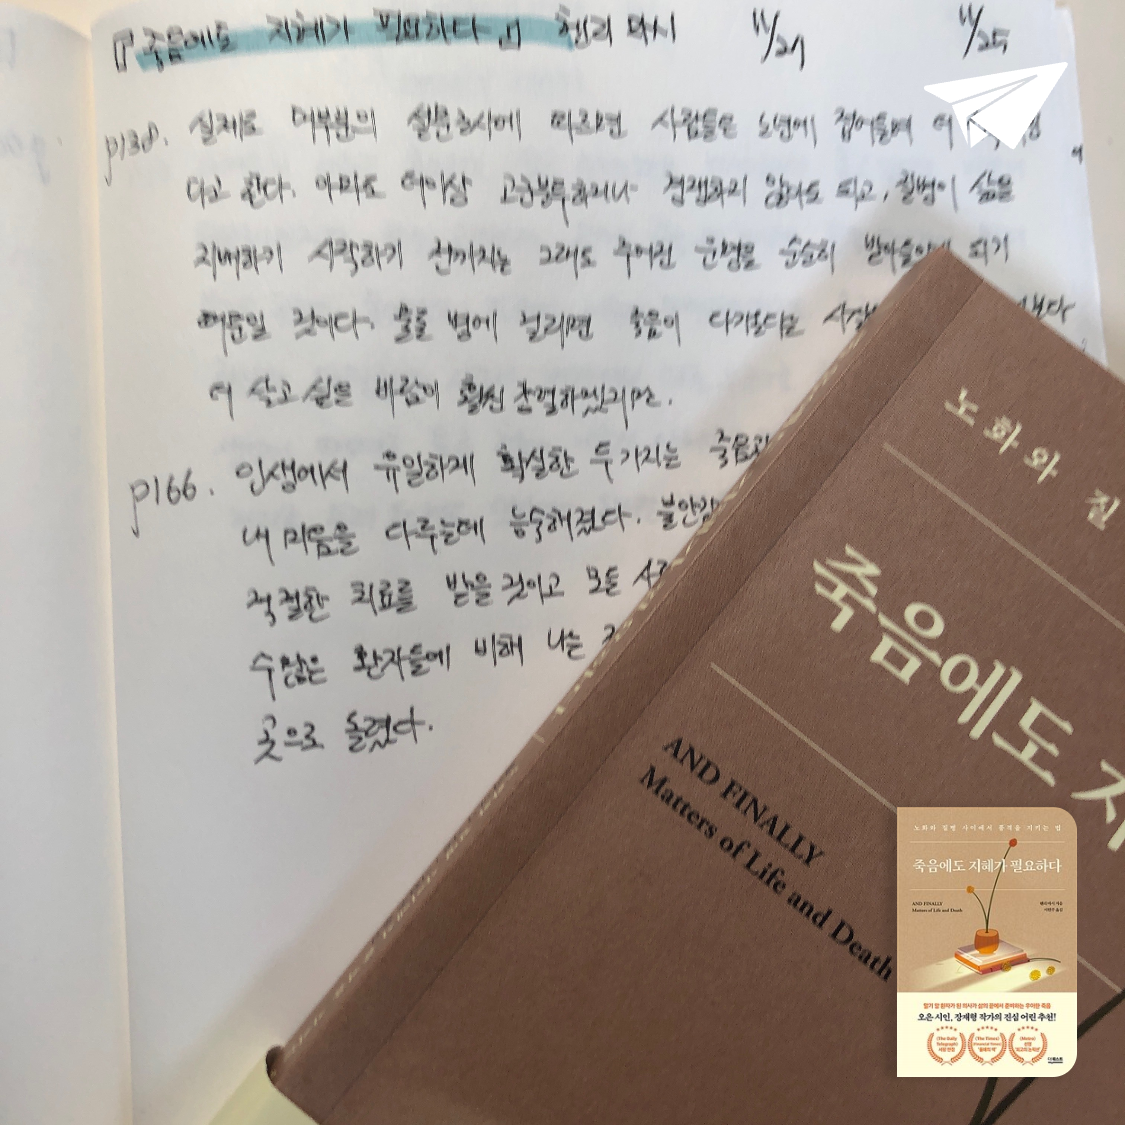 『죽음에도 지혜가 필요하다』 헨리 마시 11/21 11/25
p138. 실제로 대부분의 설문조사에 따르면 사람들은 노년에 접어들며 더
다고 한다. 아마도 더이상 고군분투하거나 경쟁하지 않아도 되고, 질병이 삶을
지배하기 시작하기 전까지는 그래도 주어진 운명을 순순히 받아들이게 되기
때문일 것이다. 물론 병에 걸리면 죽음이 다가온다는
더 살고 싶은 바람이 훨씬 간절하겠지만.
p166. 인생에서 유일하게 확실한 두 가지는 죽음과
내 마음을 다루는데 능숙해졌다. 불안감
적절한 치료를 받을 것이고 모든
수많은 환자들에 비해 나는
곳으로 돌렸다.
노화와 질
죽음에도 지
AND FINALLY
Matters of Life and Death
노화와 질병 사이에서 품격을 지키는 법
죽음에도 지혜가 필요하다
AND FINALLY
Matters of Life and Death
헨리 마시 지음
말기 암 환자가 된 의사가 삶의 끝에서 준비하는 우아한 죽음
오은 시인, 장재형 작가의 진심 어린 추천!
더퀘스트